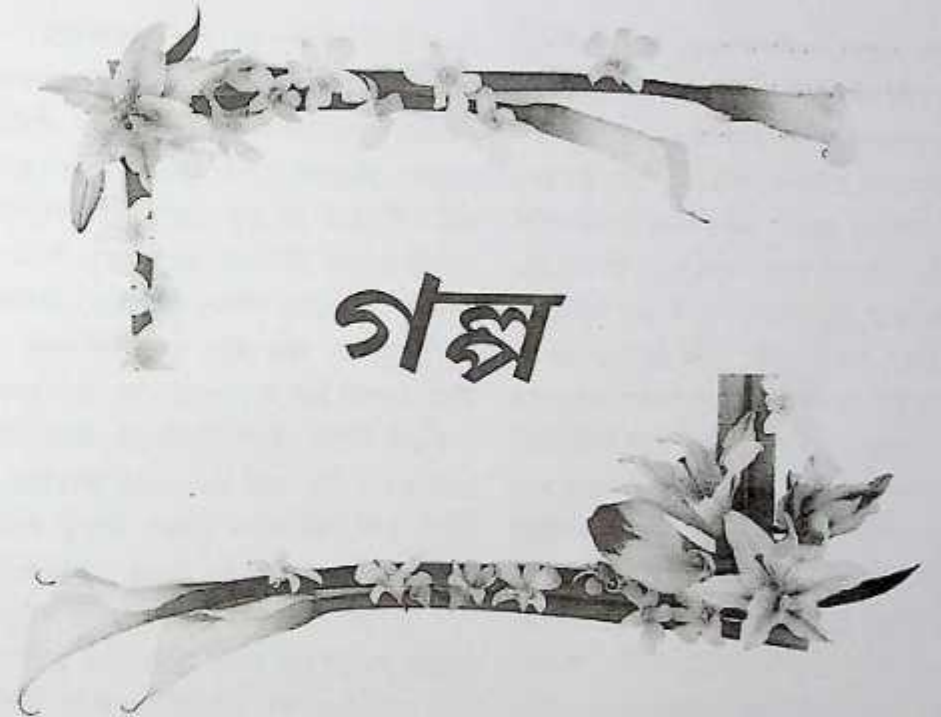 গল্প